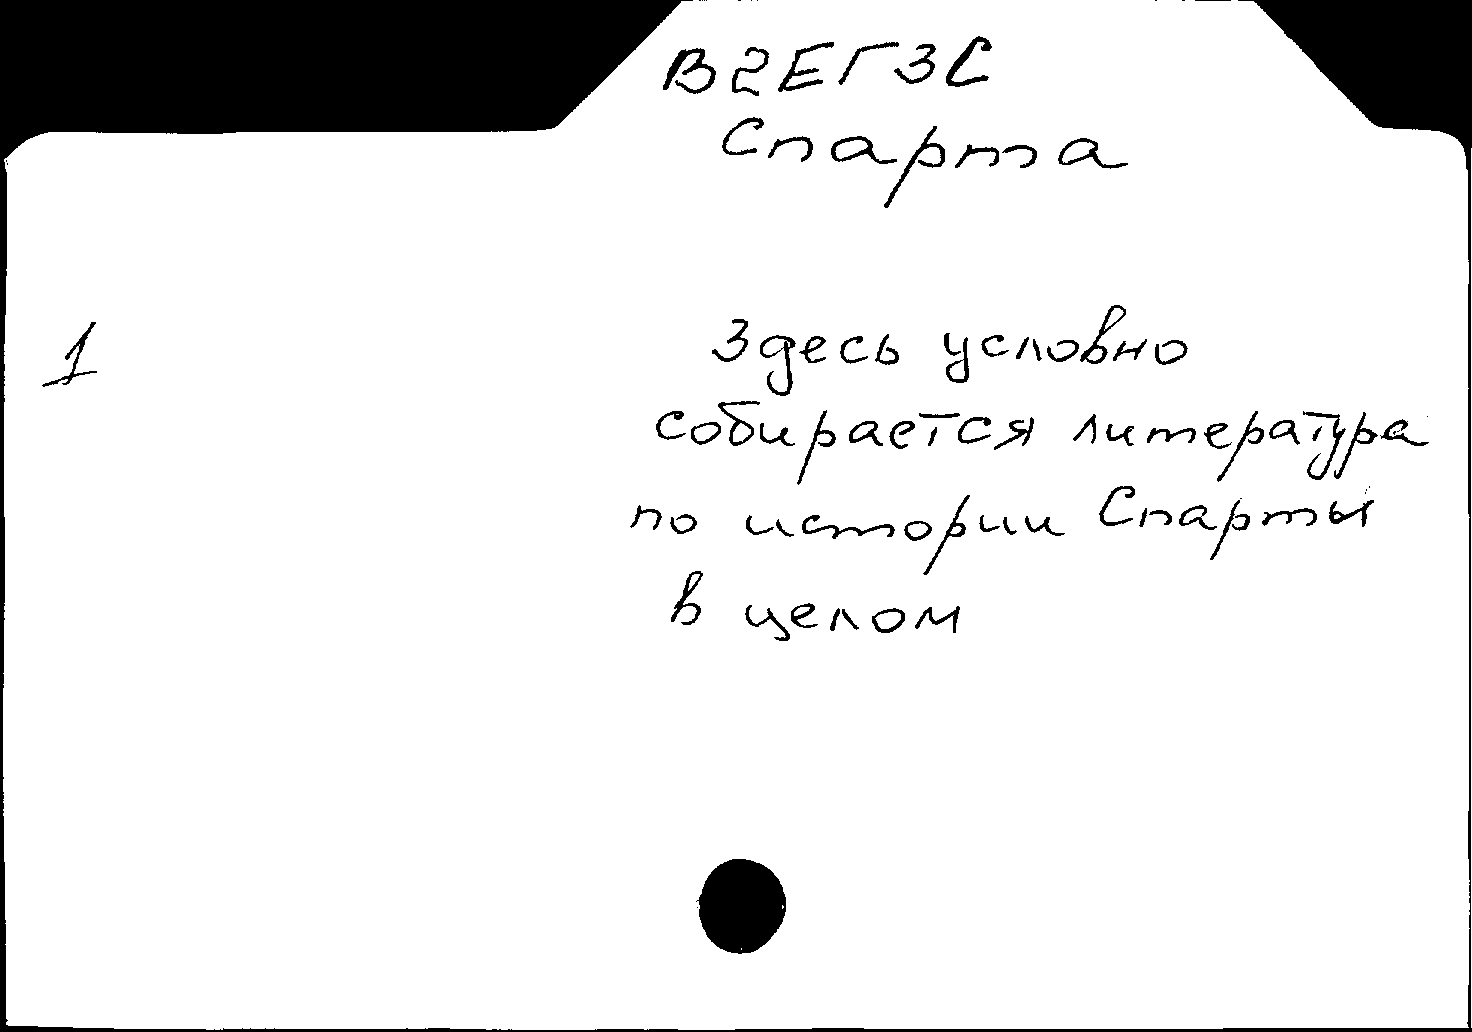 В2ЕГ3С
Спарта
1
Здесь условно
собирается литература
по истории Спарты
в целом